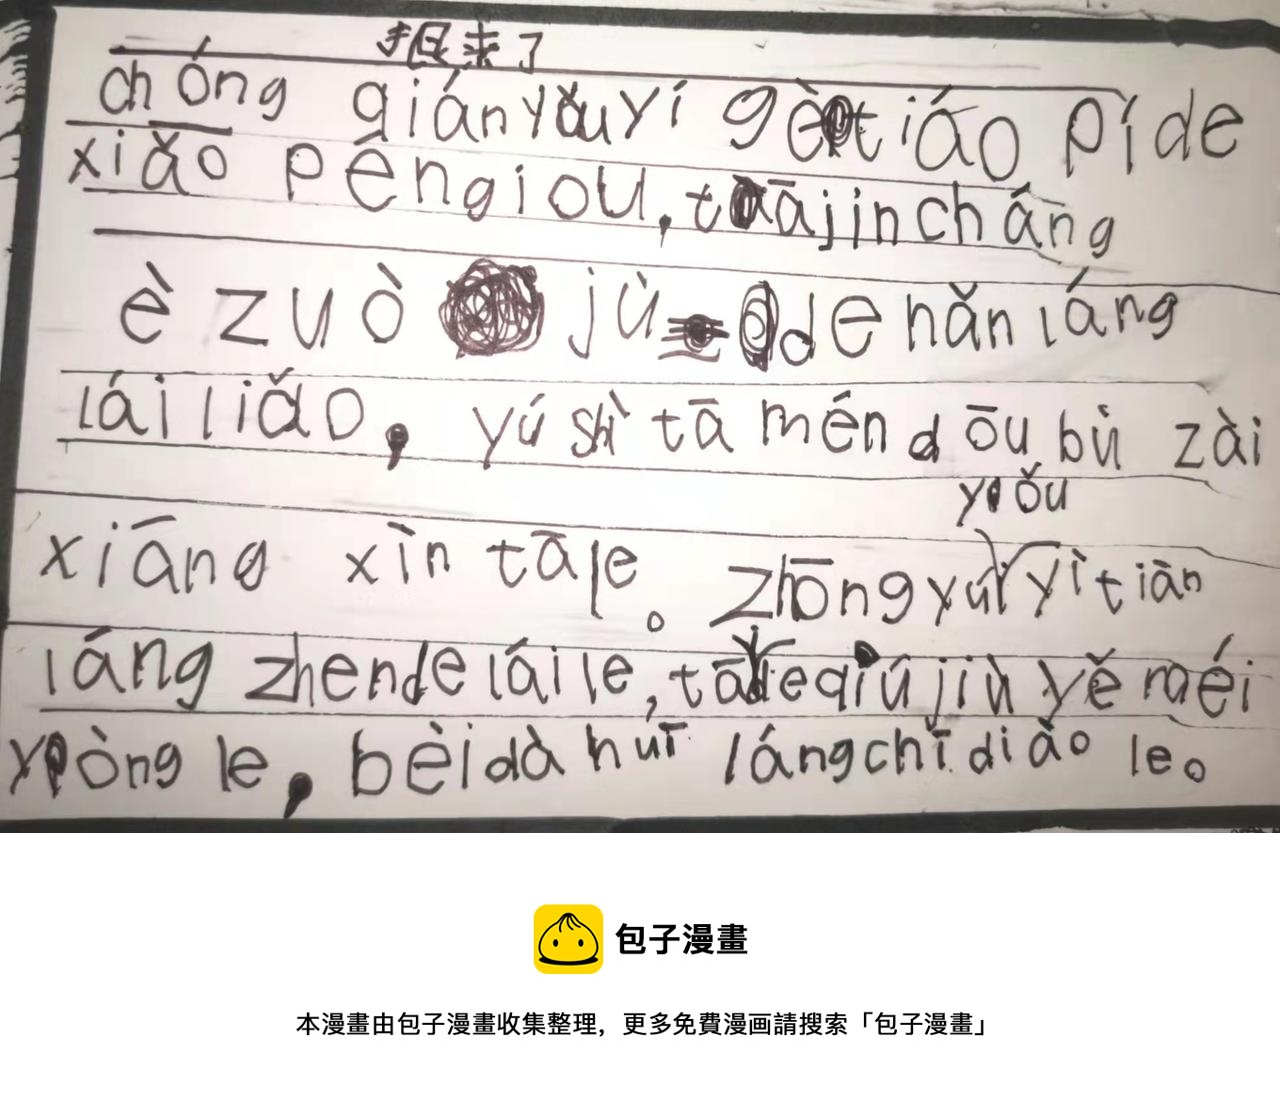 来了
chóng qián yǒu yí gè tiáo pí de
xiǎo péngiou, tā jin cháng
è zuò jù de hǎn láng
lái liǎo, yú shì tā mén dōu bù zài
xiāng xìn tā le。zhōng yú yǒu yì tiān
láng zhen de lái le, tā le qiú jiù yě méi
yòng le, bèi dà huī láng chī diào le。
包子漫畫
本漫畫由包子漫畫收集整理，更多免費漫画請搜索「包子漫畫」